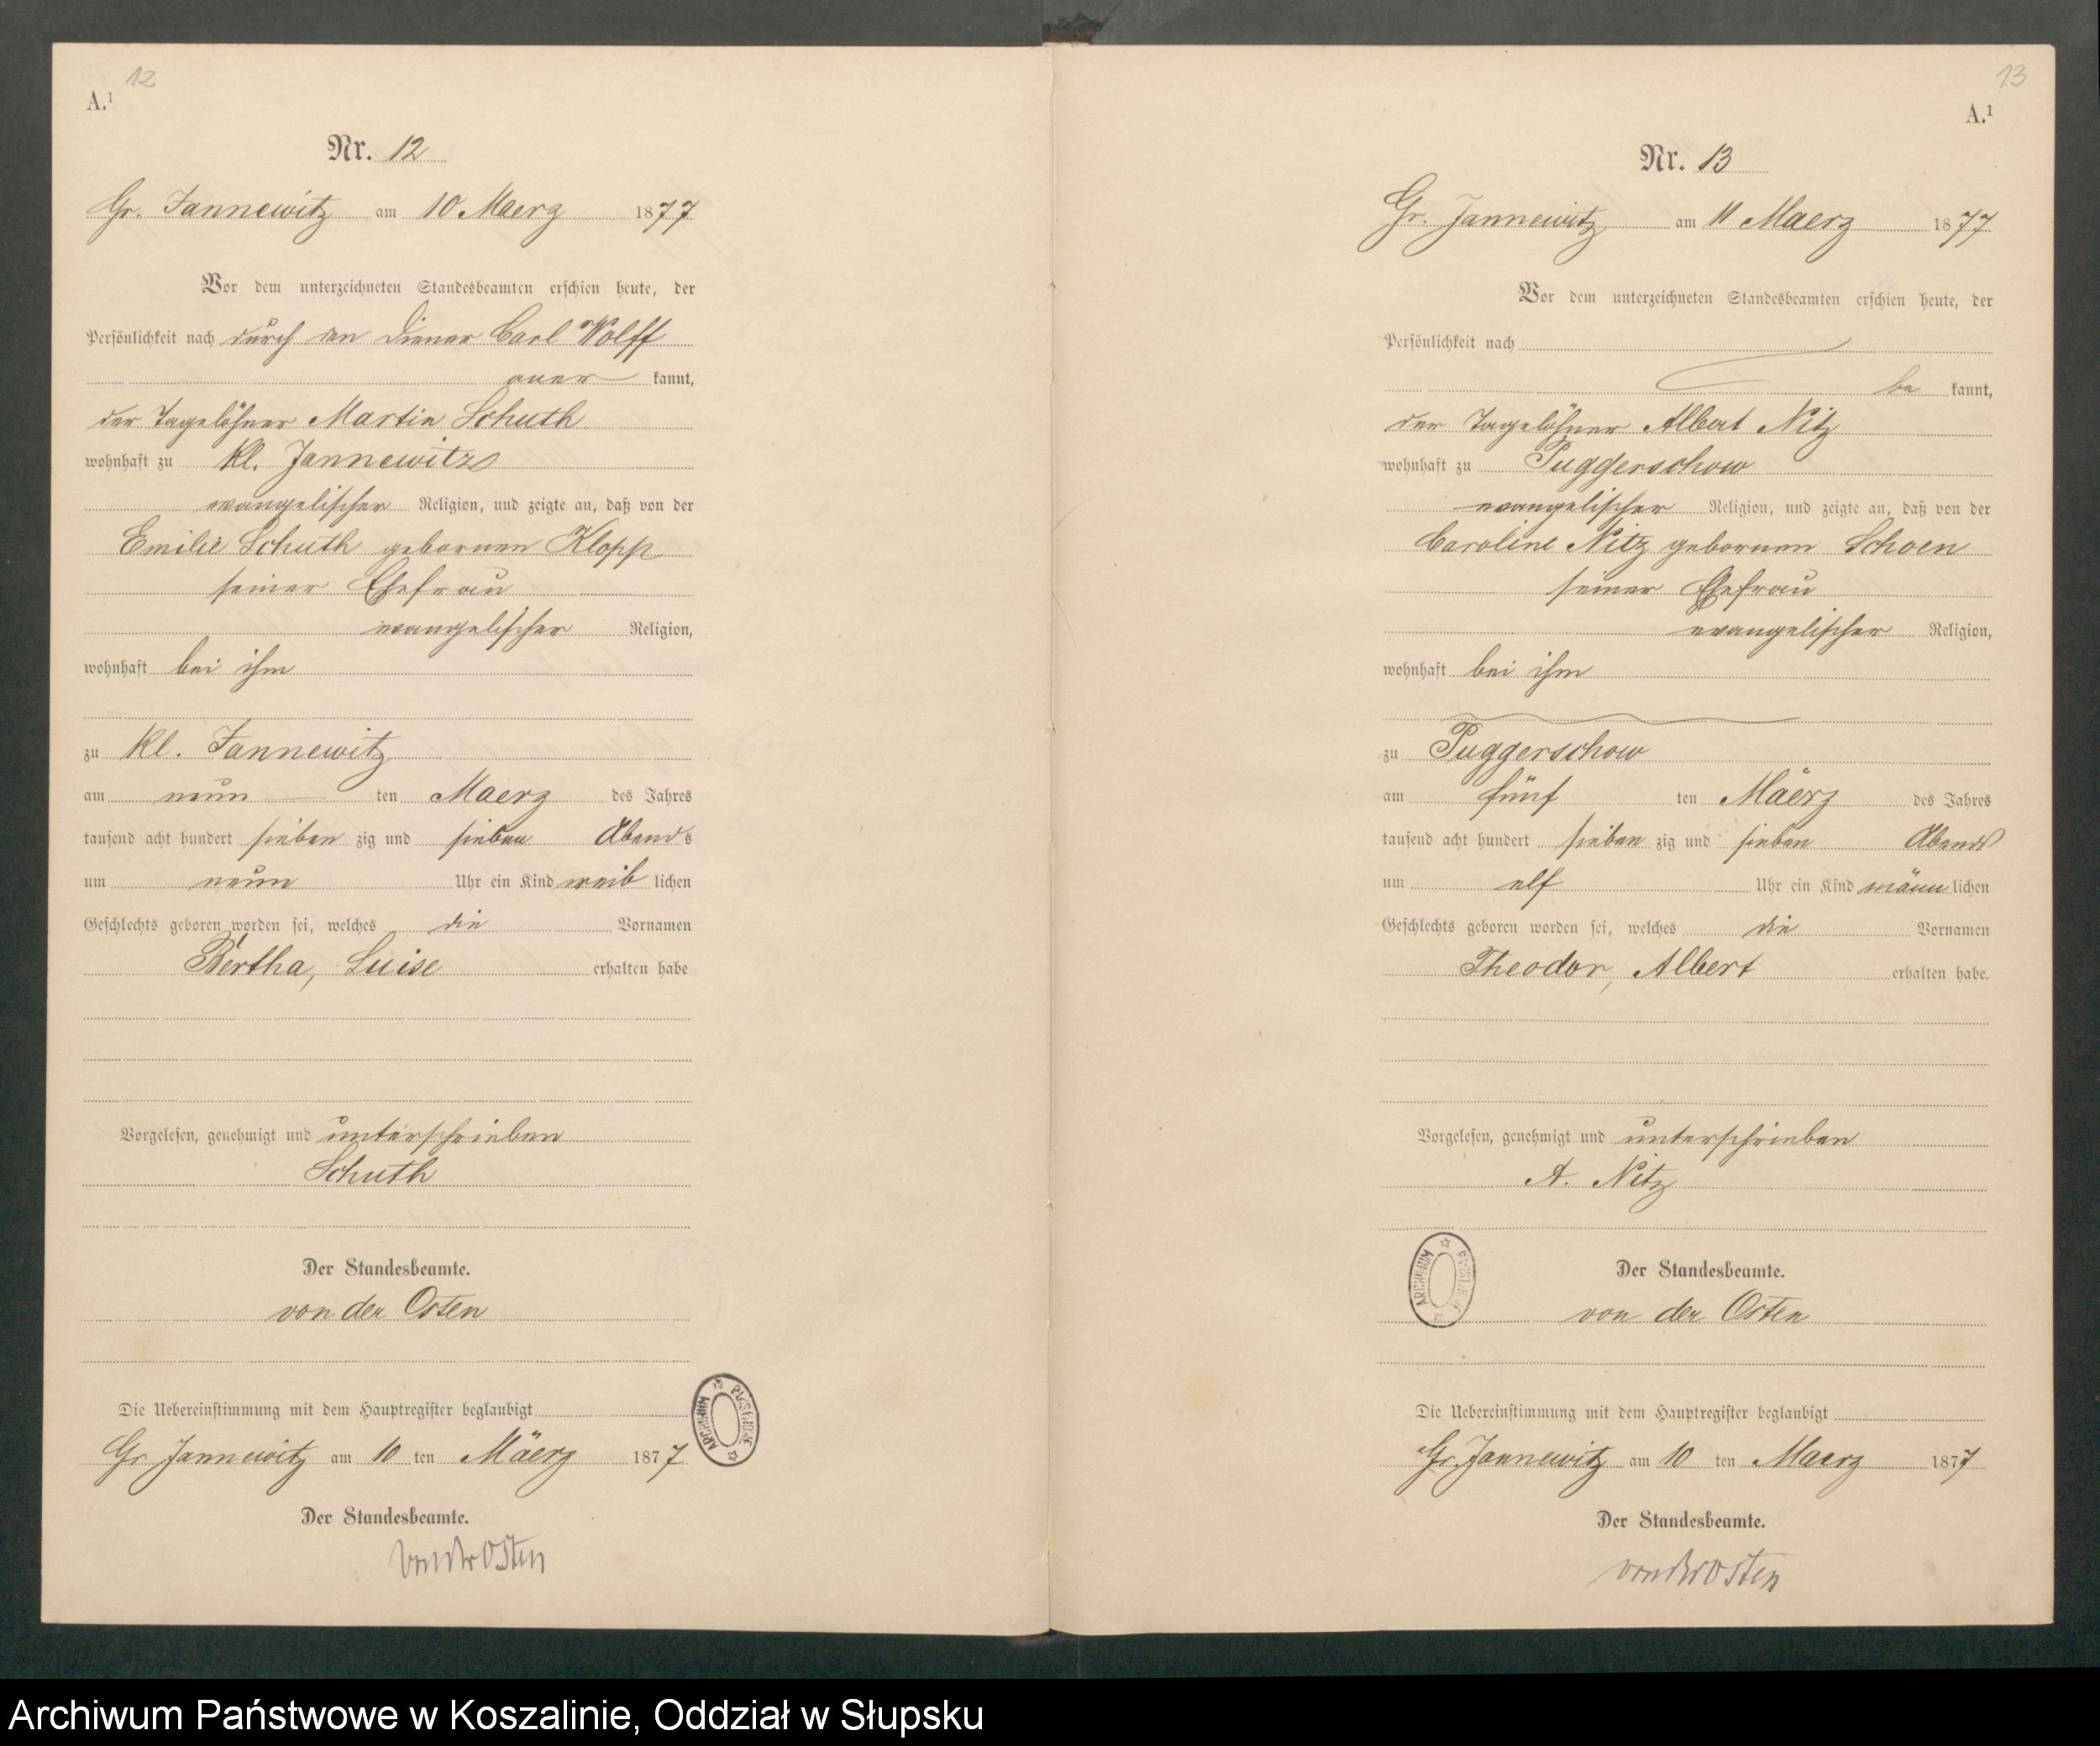 12
A.¹
Nr. 12
Gr. Jannewitz am 10 Maerz 1877
Vor dem unterzeichneten Standesbeamten erschien heute, der
Persönlichkeit nach durch den Diener Carl Wolff
aner kannt,
der Tagelöhner Martin Schuth
wohnhaft zu Kl. Jannewitz
evangelischer Religion, und zeigte an, daß von der
Emilie Schuth geborenen Klopp
seiner Ehefrau
evangelischer Religion,
wohnhaft bei ihm
zu Kl. Jannewitz
am neun ten Maerz des Jahres
tausend acht hundert sieben zig und sieben Abends
um neun Uhr ein Kind weib lichen
Geschlechts geboren worden sei, welches die Vornamen
Bertha, Luise erhalten habe
Vorgelesen, genehmigt und unterschrieben
Schuth
Der Standesbeamte.
von der Osten
Die Uebereinstimmung mit dem Hauptregister beglaubigt
Gr. Jannewitz am 10 ten Mäerz 1877
Der Standesbeamte.
von der Osten
ARCHIWUM PAŃSTWOWE
13
A.¹
Nr. 13
Gr. Jannewitz am 11 Maerz 1877
Vor dem unterzeichneten Standesbeamten erschien heute, der
Persönlichkeit nach
be kannt,
der Tagelöhner Albert Nitz
wohnhaft zu Puggerschow
evangelischer Religion, und zeigte an, daß von der
Caroline Nitz geborenen Schoen
seiner Ehefrau
evangelischer Religion,
wohnhaft bei ihm
zu Puggerschow
am fünf ten Mäerz des Jahres
tausend acht hundert sieben zig und sieben Abends
um elf Uhr ein Kind männ lichen
Geschlechts geboren worden sei, welches die Vornamen
Theodor, Albert erhalten habe.
Vorgelesen, genehmigt und unterschrieben
A. Nitz
ARCHIWUM PAŃSTWOWE
Der Standesbeamte.
von der Osten
Die Uebereinstimmung mit dem Hauptregister beglaubigt
Gr. Jannewitz am 10 ten Maerz 1877
Der Standesbeamte.
von der Osten
Archiwum Państwowe w Koszalinie, Oddział w Słupsku